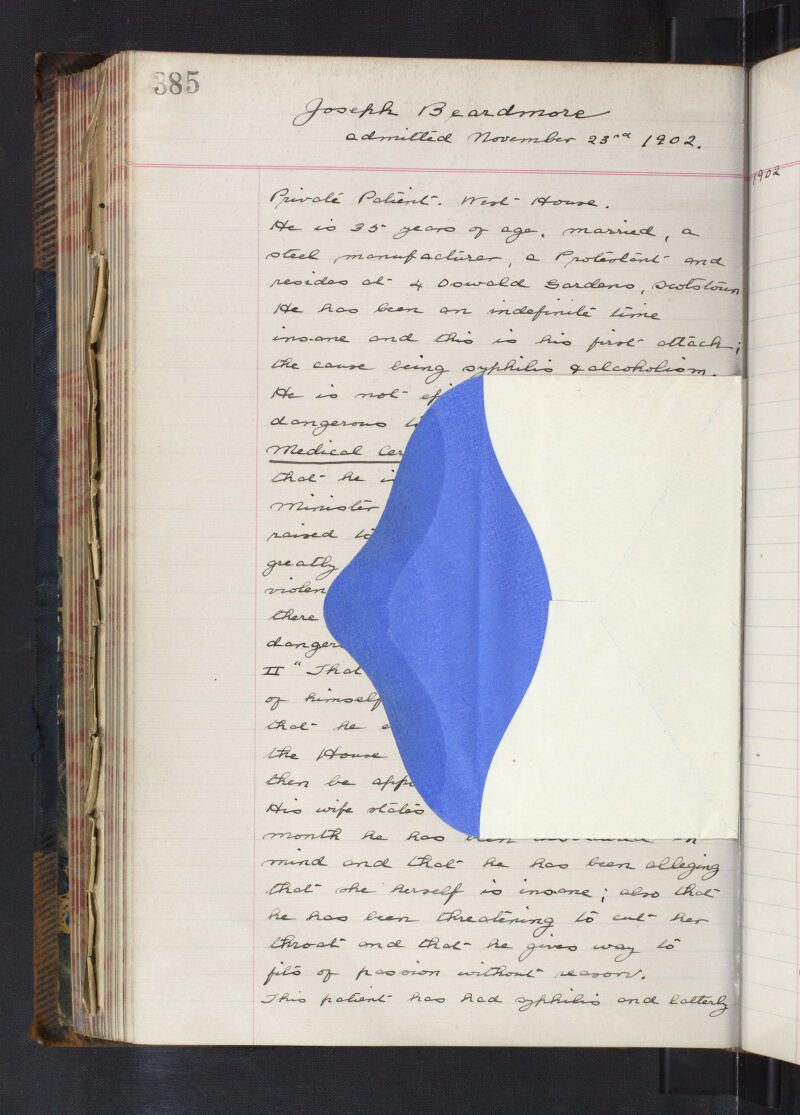 385
Joseph Beardmore
admitted November 23rd 1902.
1902
Private Patient. West House.
He is 35 years of age, married, a
steel manufacturer, a Protestant and
resides at 4 Oswald Gardens, Scotstoun
He has been an indefinite time
insane and this is his first attack;
the cause being syphilis & alcoholism.
He is not
dangerous
Medical Cer
that he
Minister
raised to
greatly
violen
there
danger
II "That
of himself
that he
the House
then be app
His wife states
month he has been in
mind and that he has been alleging
that she herself is insane; also that
he has been threatening to cut her
throat and that he gives way to
fits of passion without reason.
This patient has had syphilis and latterly